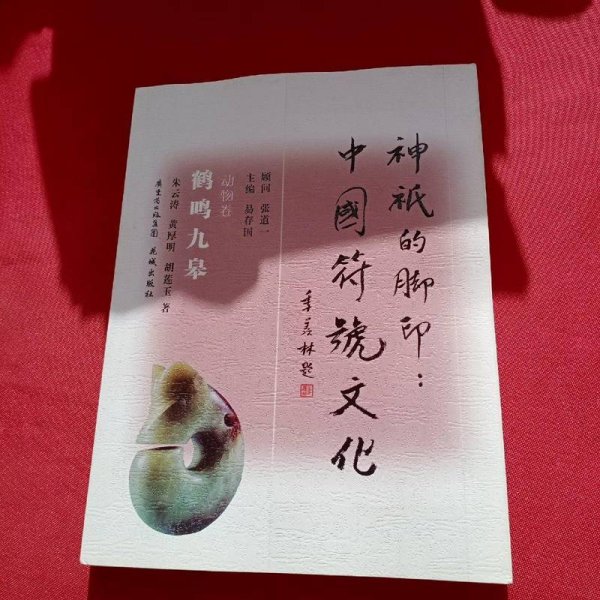 神祇的脚印：
中國符號文化
季羡林题
顾问 张道一
主编 易存国
动物卷
鹤鸣九皋
朱云涛 黄厚明 胡莲玉 著
广东省出版集团 花城出版社